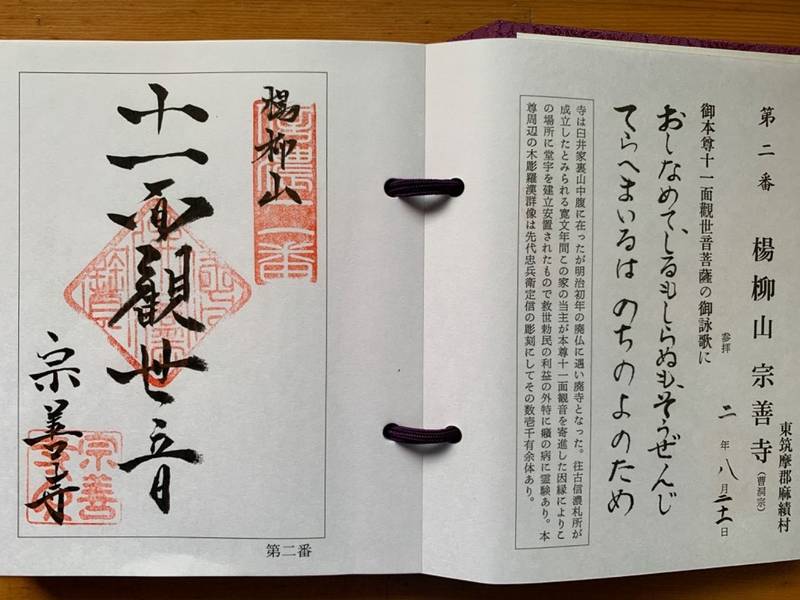 東筑摩郡麻績村
第二番 楊柳山 宗善寺(曹洞宗)
参拝 二年八月二十一日
御本尊十一面観世音菩薩の御詠歌に
おしなめて、しるもしらぬも、そうぜんじ
てらへまいるは のちのよのため
寺は臼井家裏山中腹に在ったが明治初年の廃仏に遇い廃寺となった。往古信濃札所が
成立したとみられる寛文年間この家の当主が本尊十一面観音を寄進した因縁によりこ
の場所に堂宇を建立安置されたもので救世勅民の利益の外特に癪の病に霊験あり。本
尊周辺の木彫羅漢群像は先代忠兵衛定信の彫刻にしてその数壱千有余体あり。
楊柳山
十一面観世音
宗善寺
第二番